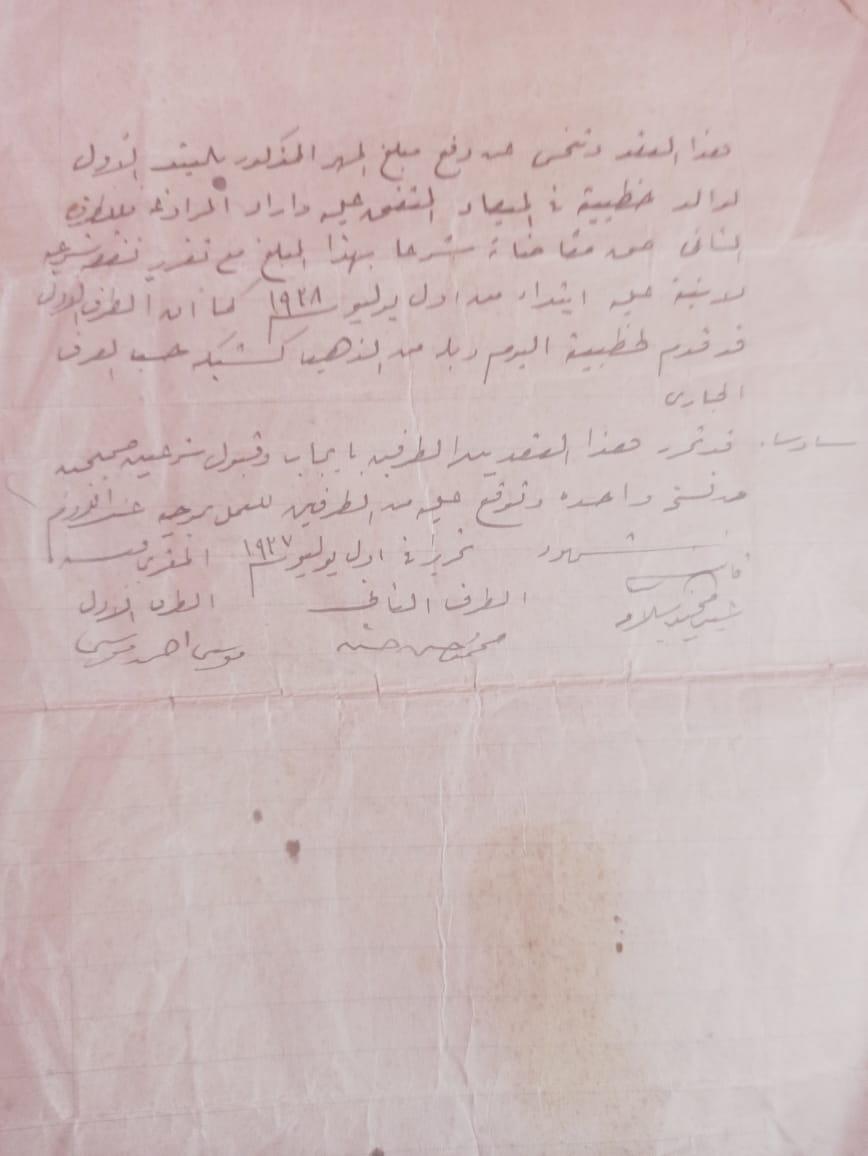 هذا العقد وتخلى عن دفع مبلغ المهر المذكور بالبند الاول
لوالد خطيبة في الميعاد المتفق عليه واراد المراوغة فللطرف
الثانى حق مقاضاة شرعا بهذا المبلغ مع تقرير نفقه شرعيه
لابنتة عليه ابتداء من اول يوليو سنة ١٩٣٨ كما ان الطرف الاول
قد قدم لخطيبة اليوم دبله من الذهب كشبكه حسب العرف
الجارى
سادسا. قد تحرر هذا العقد بين الطرفين بايجاب وقبول شرعيين صحيحين
من نسخه واحده وتوقع عليه من الطرفين للعمل بموجبه عند اللزوم
شهود تحريرا في اول يوليو سنة ١٩٣٧ المقرين
الطرف الثانى الطرف الاول
محمد حسن موسى احمد موسى